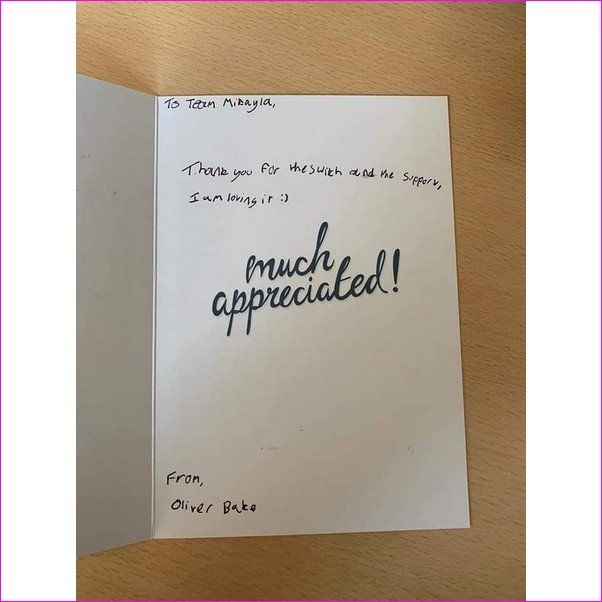 To Team Mikayla,
Thank you for the switch and the support,
I am loving it :)
much
appreciated!
From,
Oliver Bake